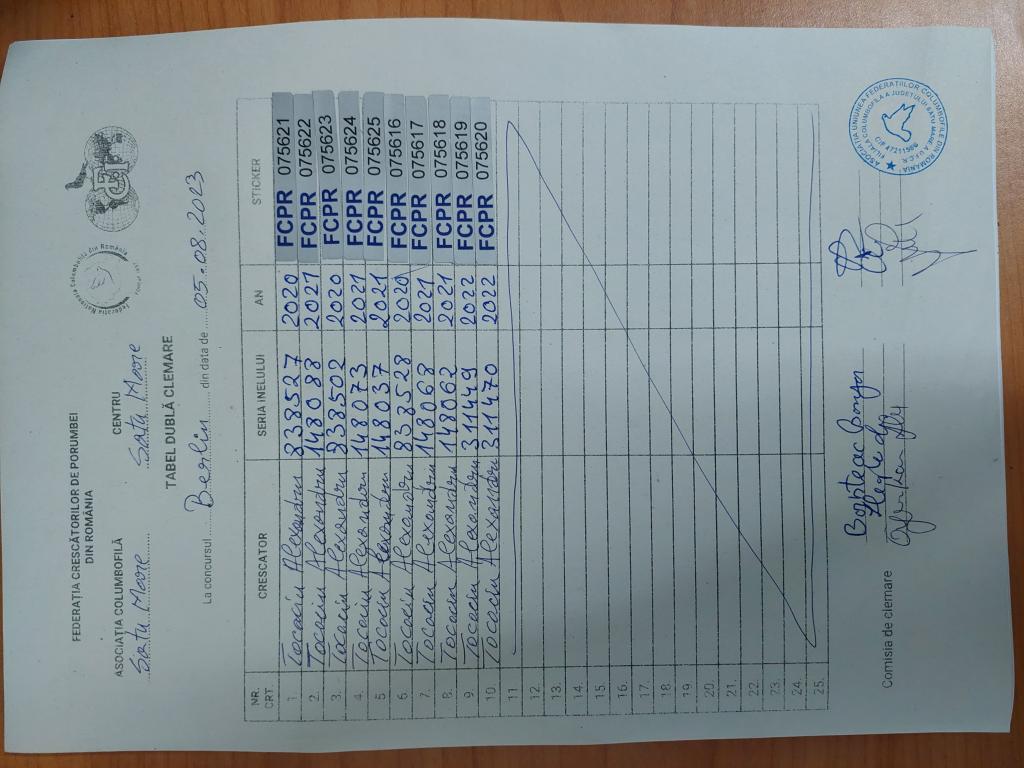 FEDERAȚIA CRESCĂTORILOR DE PORUMBEI
DIN ROMÂNIA
ASOCIAȚIA COLUMBOFILĂ
Satu Mare
CENTRU
Satu Mare
Federația Națională Columbofilă din România
TABEL DUBLĂ CLEMARE
La concursul Berlin din data de 05.08.2023
NR. CRT. CRESCATOR SERIA INELULUI AN STICKER
1. Tocaciu Alexandru 838527 2020 FCPR 075621
2. Tocaciu Alexandru 148088 2021 FCPR 075622
3. Tocaciu Alexandru 838502 2020 FCPR 075623
4. Tocaciu Alexandru 148073 2021 FCPR 075624
5 Tocaciu Alexandru 148037 2021 FCPR 075625
6. Tocaciu Alexandru 838528 2020 FCPR 075616
7. Tocaciu Alexandru 148068 2021 FCPR 075617
8. Tocaciu Alexandru 148062 2021 FCPR 075618
9. Tocaciu Alexandru 311449 2022 FCPR 075619
10. Tocaciu Alexandru 311470 2022 FCPR 075620
11
12.
13.
14.
15.
16.
17.
18.
19.
20.
21.
22.
23.
24.
25.
Comisia de clemare
ASOCIAȚIA UNIUNEA FEDERAȚIILOR COLUMBOFILE DIN ROMÂNIA
FILIALA COLUMBOFILĂ A JUDEȚULUI SATU MARE A U.F.C.R.
CIF 47211586